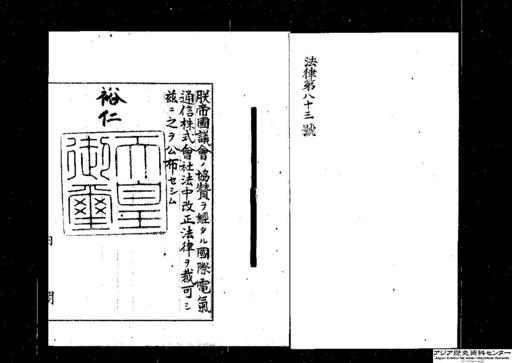 法律第八十三號
朕帝國議會ノ協贊ヲ經タル國際電氣
通信株式會社法中改正法律ヲ裁可シ
茲ニ之ヲ公布セシム
裕仁
天皇
御璽
内
閣
アジア歴史資料センター
Japan Center for Asian Historical Records